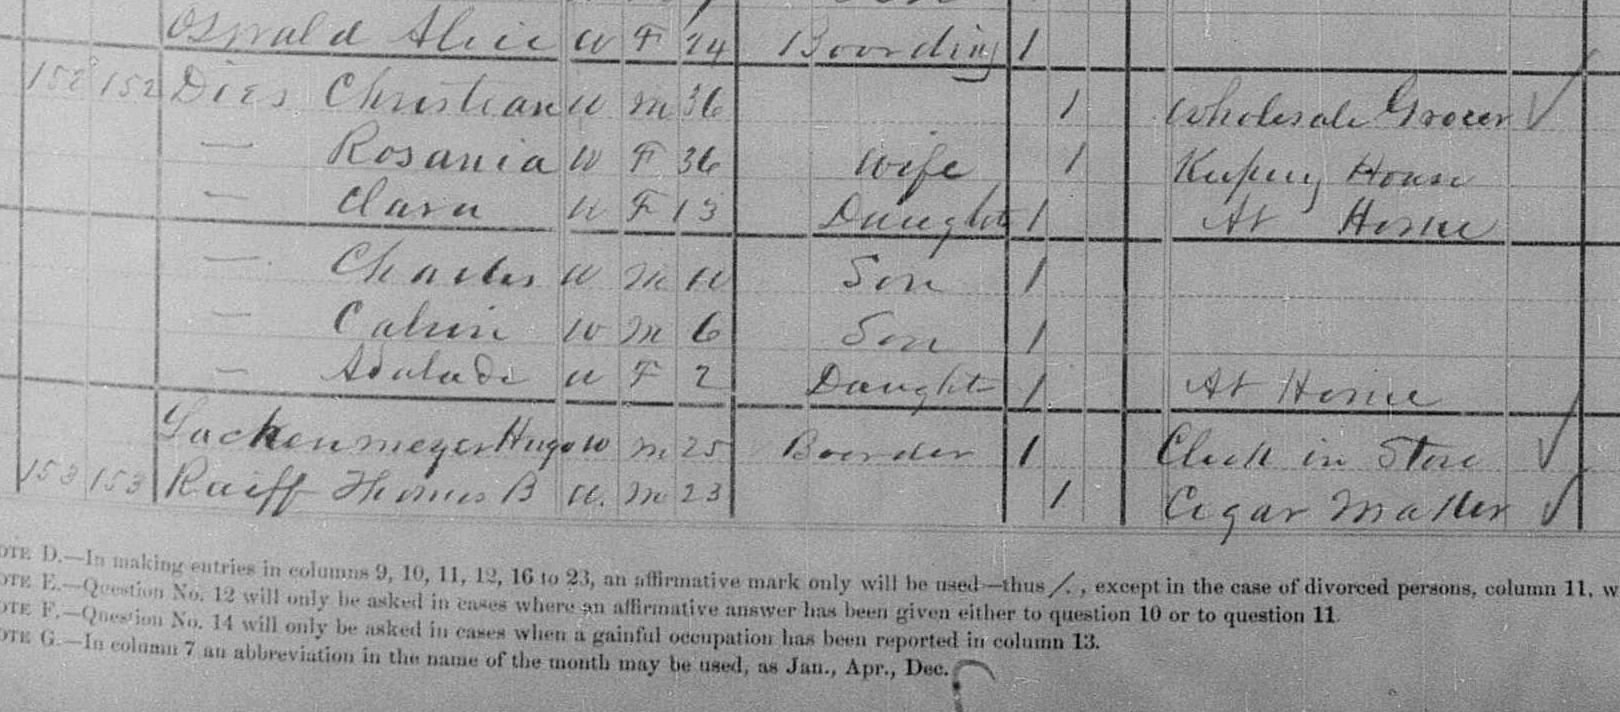 Oswald Alice W F 24 Boarding 1
152 152 Dies Christian W M 36 1 Wholesale Grocer ✓
— Rosania W F 36 Wife 1 Keeping House
— Clara W F 13 Daught 1 At Home
— Charles W M 10 Son 1
— Calvin W M 6 Son 1
— Adalade W F 2 Daught 1 At Home
Lackenmeyer Hugo W M 25 Boarder 1 Clerk in Store ✓
153 153 Raiff Thomas B W. M 23 1 Cigar Maker ✓
OTE D.—In making entries in columns 9, 10, 11, 12, 16 to 23, an affirmative mark only will be used—thus /., except in the case of divorced persons, column 11, w
OTE E.—Question No. 12 will only be asked in cases where an affirmative answer has been given either to question 10 or to question 11.
OTE F.—Question No. 14 will only be asked in cases when a gainful occupation has been reported in column 13.
OTE G.—In column 7 an abbreviation in the name of the month may be used, as Jan., Apr., Dec.